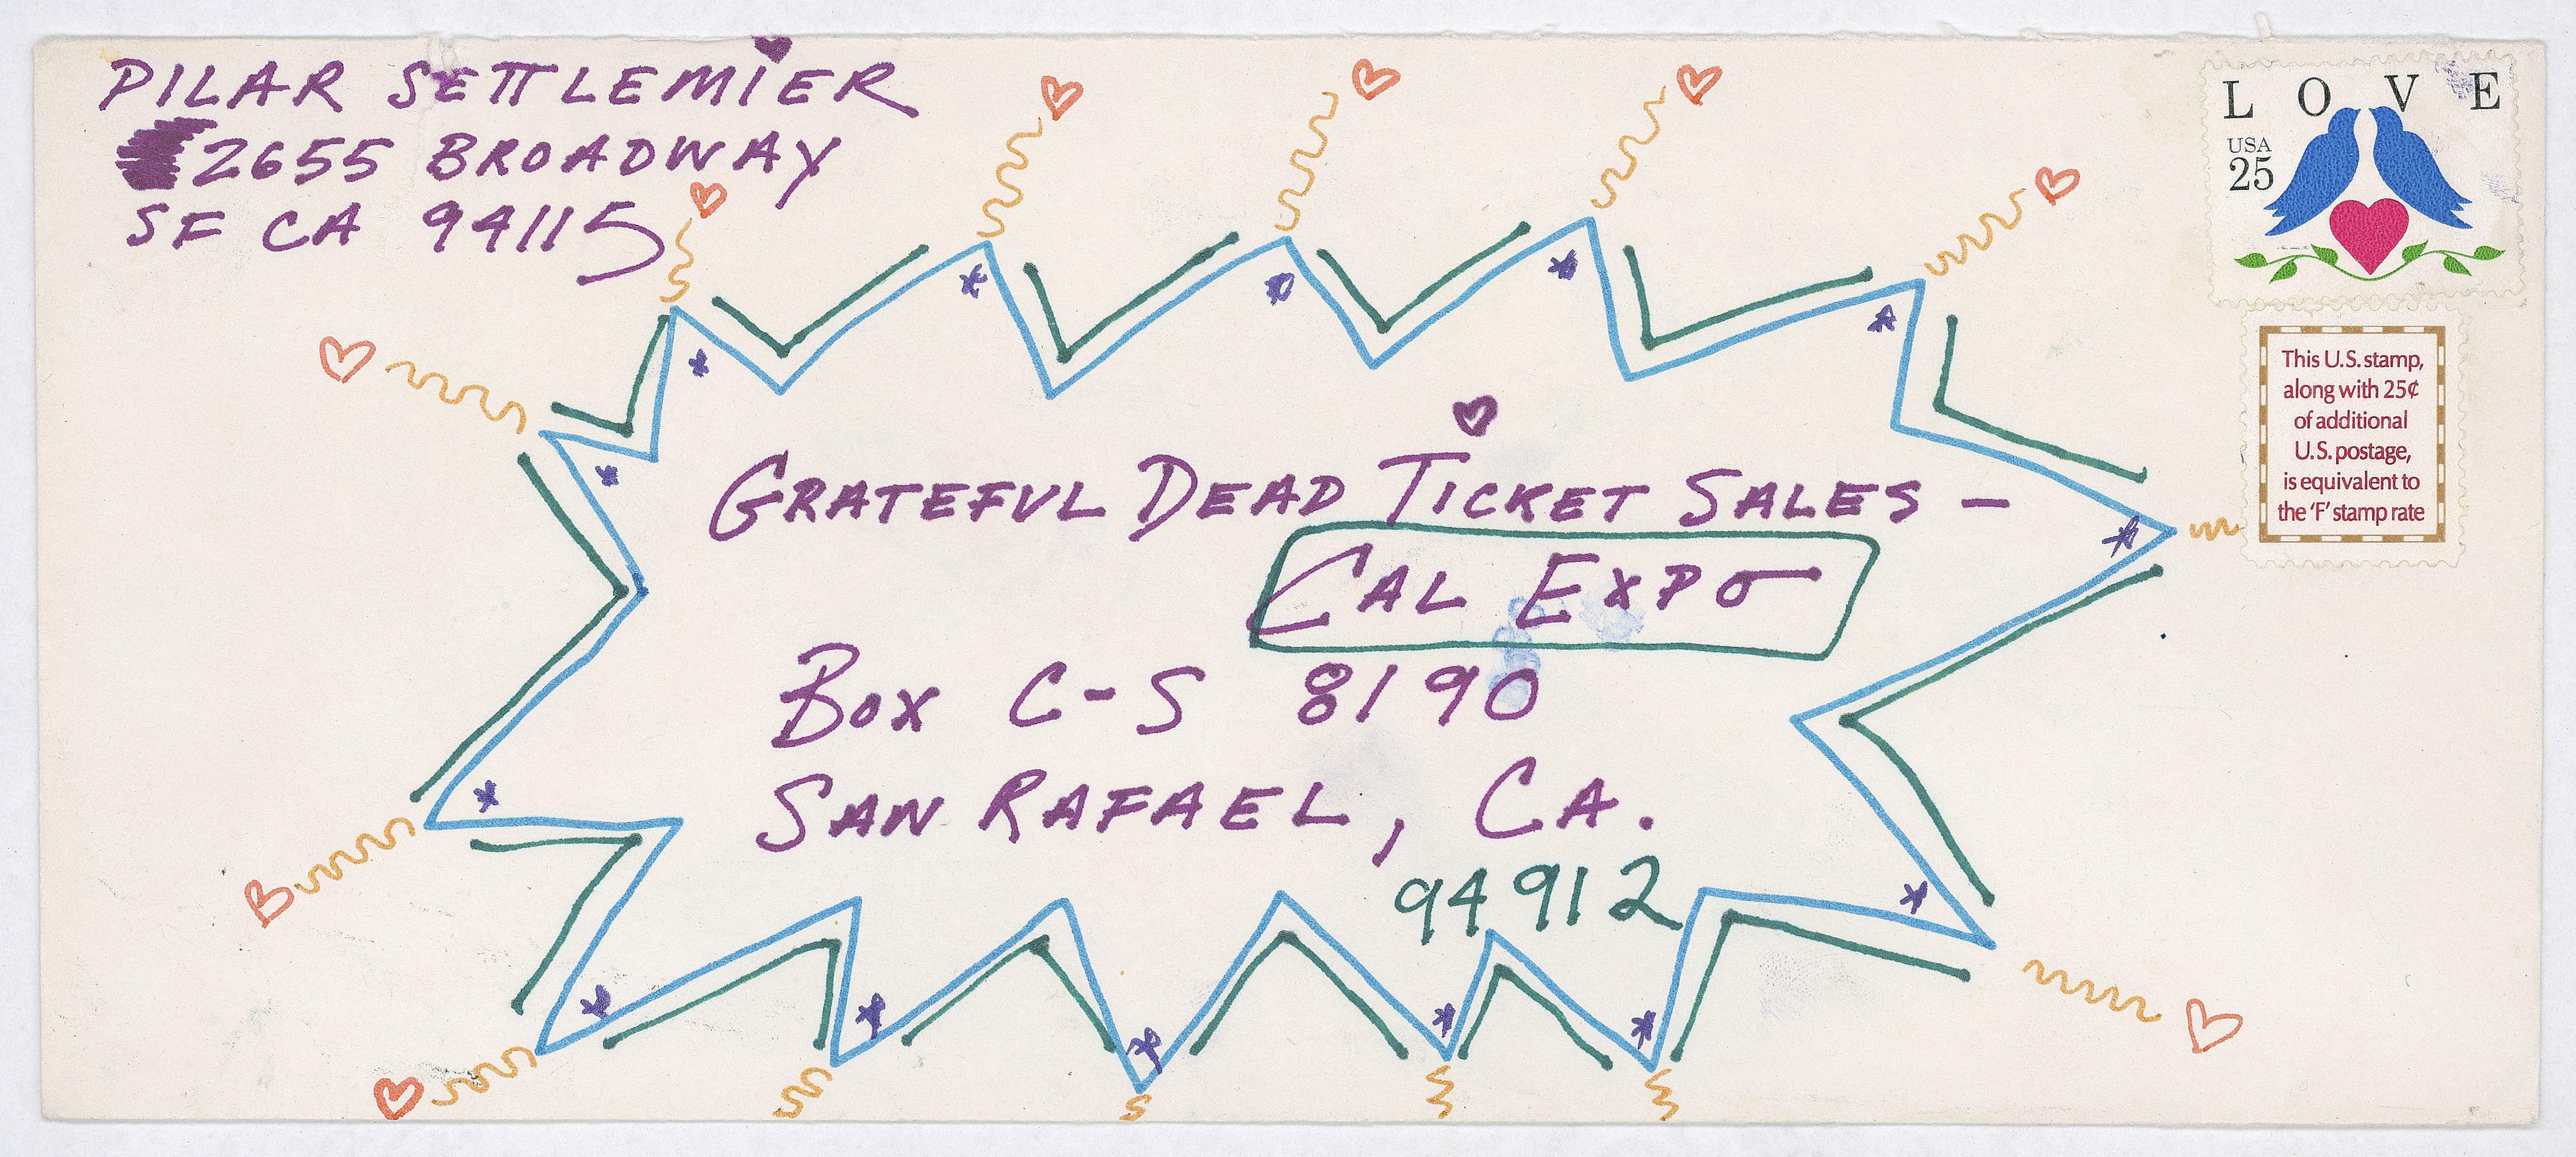 PILAR SETTLEMIER
2655 BROADWAY
SF CA 94115
L O V E
USA
25
This U.S. stamp,
along with 25¢
of additional
U.S. postage,
is equivalent to
the 'F' stamp rate
GRATEFUL DEAD TICKET SALES –
CAL EXPO
BOX C-S 8190
SAN RAFAEL, CA.
94912